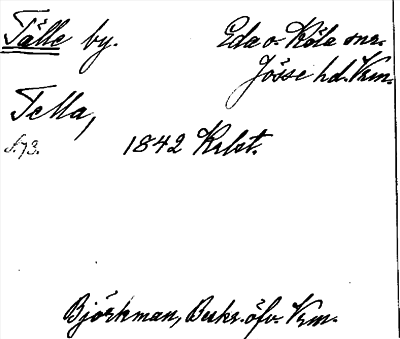 Tälle by. Eda o. Köla snr.
Jösse hd. Vrm.
Tella,
s. 73. 1842 Krlst.
Björkman, Beskr. öfv. Vrm.